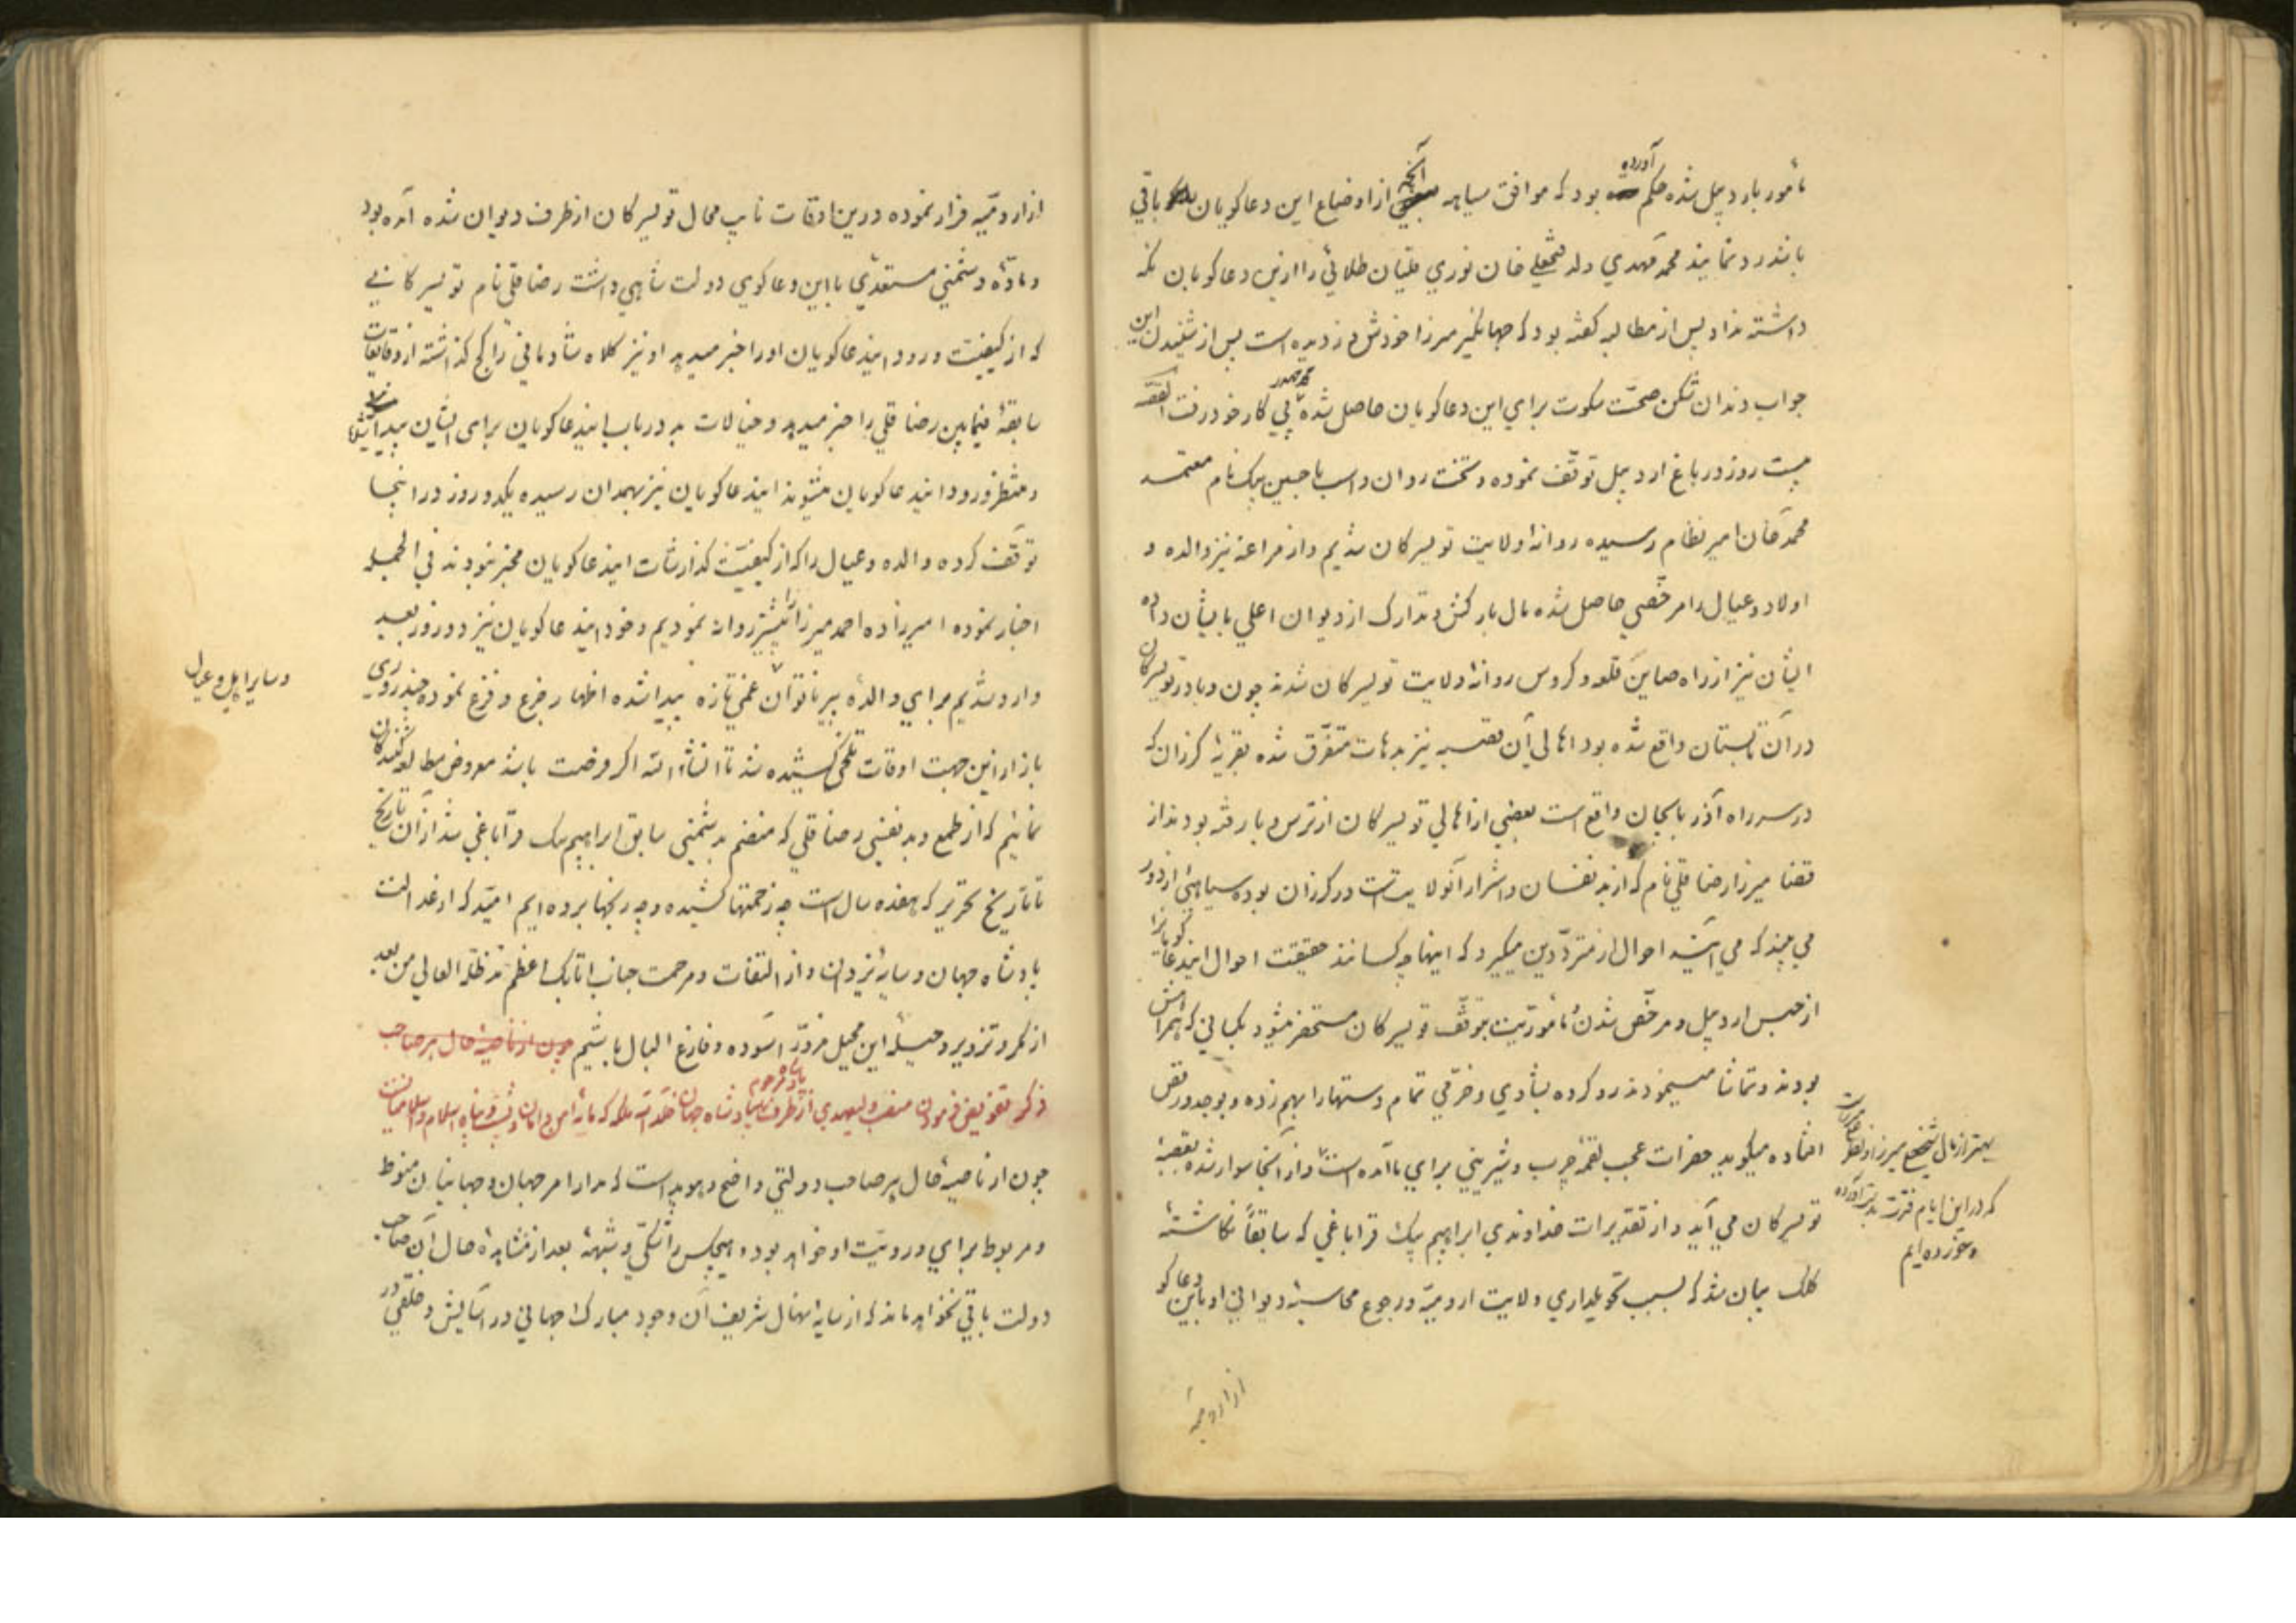 مأمور باردبیل شده حکم آورده بود که موافق سیاهه آنچه از اوضاع این دعاکویان باقی
باشد رد نمایند محمد مهدی ولد فتحعلی خان نوری قلیان طلائی را ازین دعاکویان نکه
داشته نداد پس از مطالبه کفته بود که جهانکیر میرزا خودش دزدیده است پس از شنیدن این
جواب دندان شکن صحت سکوت برای این دعاکویان حاصل شده محمد مهدی پی کار خود رفت القصه
بیست روز در باغ اردبیل توقف نموده و تخت روان و اسب با حسین بیک نام معتمد
محمد خان امیر نظام رسیده روانه ولایت تویسرکان شدیم و از مراغه نیز والده و
اولاد و عیال را مرخصی حاصل شده مال بارکش و تدارک از دیوان اعلی بایشان داده
ایشان نیز از راه صاین قلعه و کروس روانه ولایت تویسرکان شدند چون وبا در تویسرکان
در آن تابستان واقع شده بود اهالی آن قصبه نیز بدهات متفرق شده بقریه کرزان که
در سر راه آذربایجان واقع است بعضی از اهالی تویسرکان از ترس وبا رفته بودند از
قضا میرزا رضا قلی نام که از بد نفسان و اشرار آنولایت است در کرزان بوده سیاهی از دور
می بیند که می آید احوال از مترددین میکیرد که اینها چه کسانند حقیقت احوال ایندعاکویانرا
از حبس اردبیل و مرخص شدن و مأموریت بتوقف تویسرکان مستحضر میشود بکسانی که همراهش
بودند و تماشا مینمودند رو کرده بشادی و خرمی تمام دستها را بهم زده و بوجد و رقص
افتاده میکوید حضرات عجب لقمه چرب و شیرینی برای ما آمده است و از آنجا سوار شده بقصبه
تویسرکان می آید و از تقدیرات خداوندی ابراهیم بیک قراباغی که سابقاً نکاشته
کلک بیان شد که بسبب تحویلداری ولایت ارومیه و رجوع محاسبه دیوانی او باین دعاکو
بهتر از مال شیخ میرزا
که در این ایام فترت بدست آورده
و خورده ایم
از ارومیه
از ارومیه فرار نموده درین اوقات نایب محال تویسرکان از طرف دیوان شده آمده بود
و ماده دشمنی مستعدی با این دعاکوی دولت شاهی داشت رضا قلی نام تویسرکانی
که از کیفیت ورود ایندعاکویان او را خبر میدهد او نیز کلاه شادمانی را کج کذاشته از وقایعات
سابقه فیمابین رضا قلی را خبر میدهد و خیالات بد در باب ایندعاکویان برای ایشان پیدا
و منتظر ورود ایندعاکویان میشوند ایندعاکویان نیز بهمدان رسیده یکدو روز در اینجا
توقف کرده والده و عیال را که از کیفیت کذارشات ایندعاکویان مخبر نبودند فی الجمله
اخبار نموده امیرزاده احمد میرزا را پیشتر روانه نمودیم و خود ایندعاکویان نیز دو روز بعد
وارد شدیم برای والده پیر ناتوان غمی تازه پیدا شده اظهار جزع و فزع نموده چند روزی
و سایر اهل و عیال
باز ازین جهت اوقات تلخی کشیده شد تا انشاء الله اکر فرصت باشد معروض مطالعه کنندکان
نمائیم که از طمع و بد نفسی رضا قلی که منضم بدشمنی سابق ابراهیم بیک قراباغی شد از آن تاریخ
تا تاریخ تحریر که هفده سال است چه زحمتها کشیده و چه رنجها برده ایم امید که از عدالت
پادشاه جهان و سایه یزدان و از التفات و مرحمت جناب اتابک اعظم مد ظله العالی من بعد
از مکر و تزویر و حیله این محیل مزور آسوده و فارغ البال باشیم چون از ناصیه حال هر صاحب
ذکر تفویض فرمودن منصب ولیعهدی از طرف پادشاه مرحوم بپادشاه جهان خلد الله ملکه که مایه امن و امان و پشت و پناه اسلام و اسلامیانست
چون از ناصیه حال هر صاحب دولتی واضح و هویداست که مدار امر جهان و جهانیان منوط
و مربوط برای و رویت او خواهد بود و هیچکس را شکی و شبهه بعد از مشاهده حال آن صاحب
دولت باقی نخواهد ماند که از سایه نهال شریف آن وجود مبارک جهانی در آسایش و خلقی در